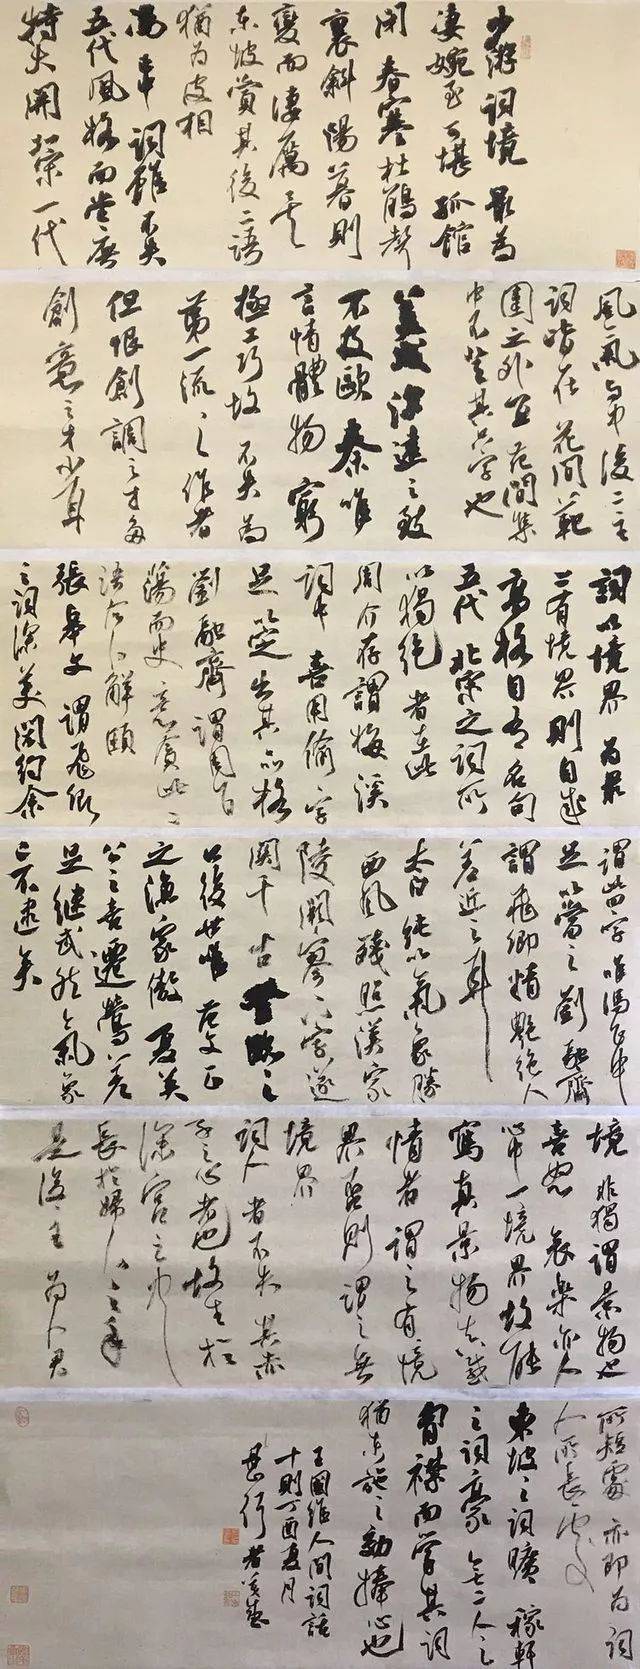 少游词境最为
凄婉至可堪孤馆
闭春寒杜鹃声
里斜阳暮则
变而凄厉矣
东坡赏其后二语
犹为皮相
冯正中词虽不失
五代风格而堂庑
特大开北宋一代
风气与中后二主
词皆在花间范
围之外宜花间集
中不登其只字也
美成深远之致
不及欧秦唯
言情體物窮
極工巧故不失为
第一流之作者
但恨創調之才多
創意之才少耳
詞以境界为最
上有境界則自成
高格自有名句
五代北宋之词所
以獨绝者在此
周介存謂梅溪
词中喜用偷字
足以定其品格
劉融齋謂周旨
蕩而史意贪此二
语令人解頤
張皋文謂飛卿
之词深美闳约余
謂此四字唯馮正中
足以當之劉融齋
謂飛卿精艷绝人
差近之耳
太白純以氣象勝
西風殘照漢家
陵闕寥寥八字遂
關千古登臨之
口後世唯范文正
之漁家傲夏英
公之喜遷鶯差
足继武然氣象
已不逮矣
境非獨謂景物也
喜怒哀樂亦人
心中一境界故能
寫真景物真感
情者謂之有境
界否則謂之無
境界
詞人者不失其赤
子之心者也故生於
深宫之中
長於婦人之手
是後主为人君
所短處亦即为詞
人所長處
東坡之词曠稼軒
之词豪無二人之
胸襟而学其词
猶东施之効捧心也
王國维人间词话
十則丁酉夏月